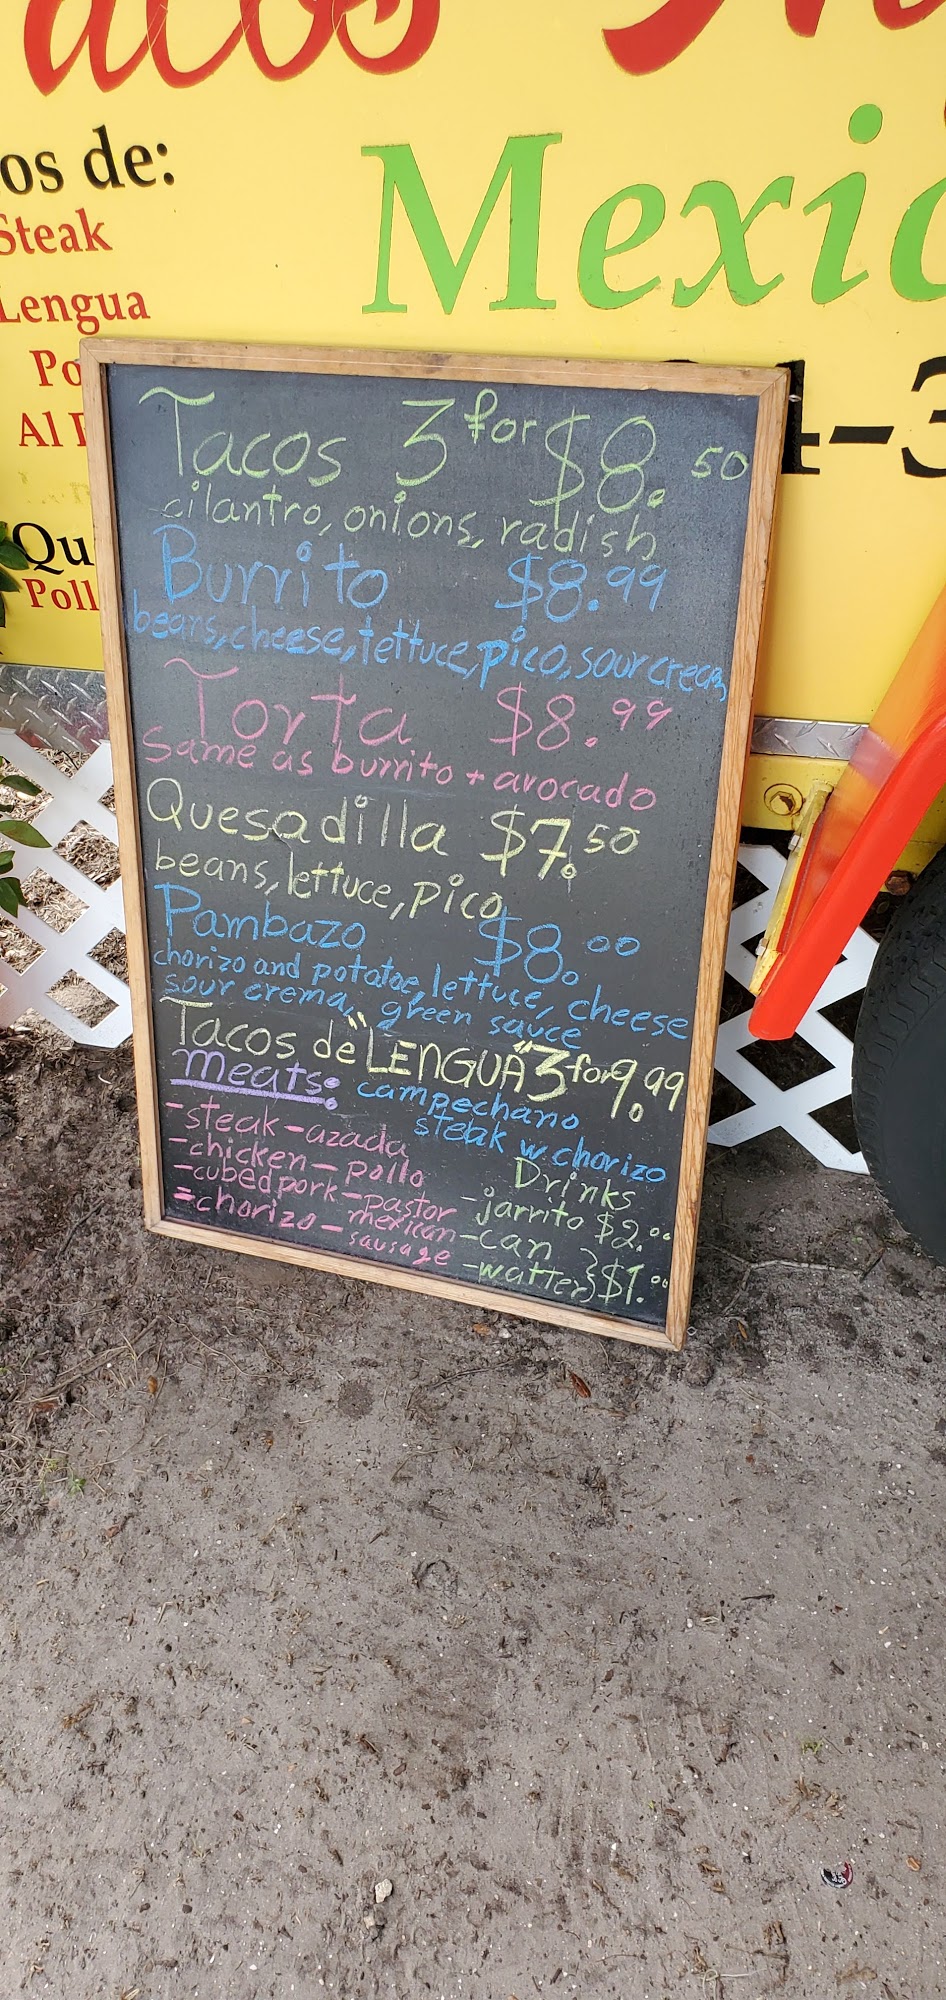 Mexic
os de:
Steak
Lengua
Po
Al
Qu
Poll
Tacos 3 for $8.50
cilantro, onions, radish
Burrito $8.99
beans, cheese, lettuce, pico, sour cream
Torta $8.99
Same as burrito + avocado
Quesadilla $7.50
beans, lettuce, pico
Pambazo $8.00
chorizo and potatoe, lettuce, cheese
sour crema, green sauce
Tacos de "LENGUA" 3 for 9.99
Meats:
-steak-azada
-chicken-pollo
-cubed pork-pastor
-chorizo-mexican
sausage
campechano
steak w chorizo
Drinks
-jarrito $2.00
-can
-watter } $1.00